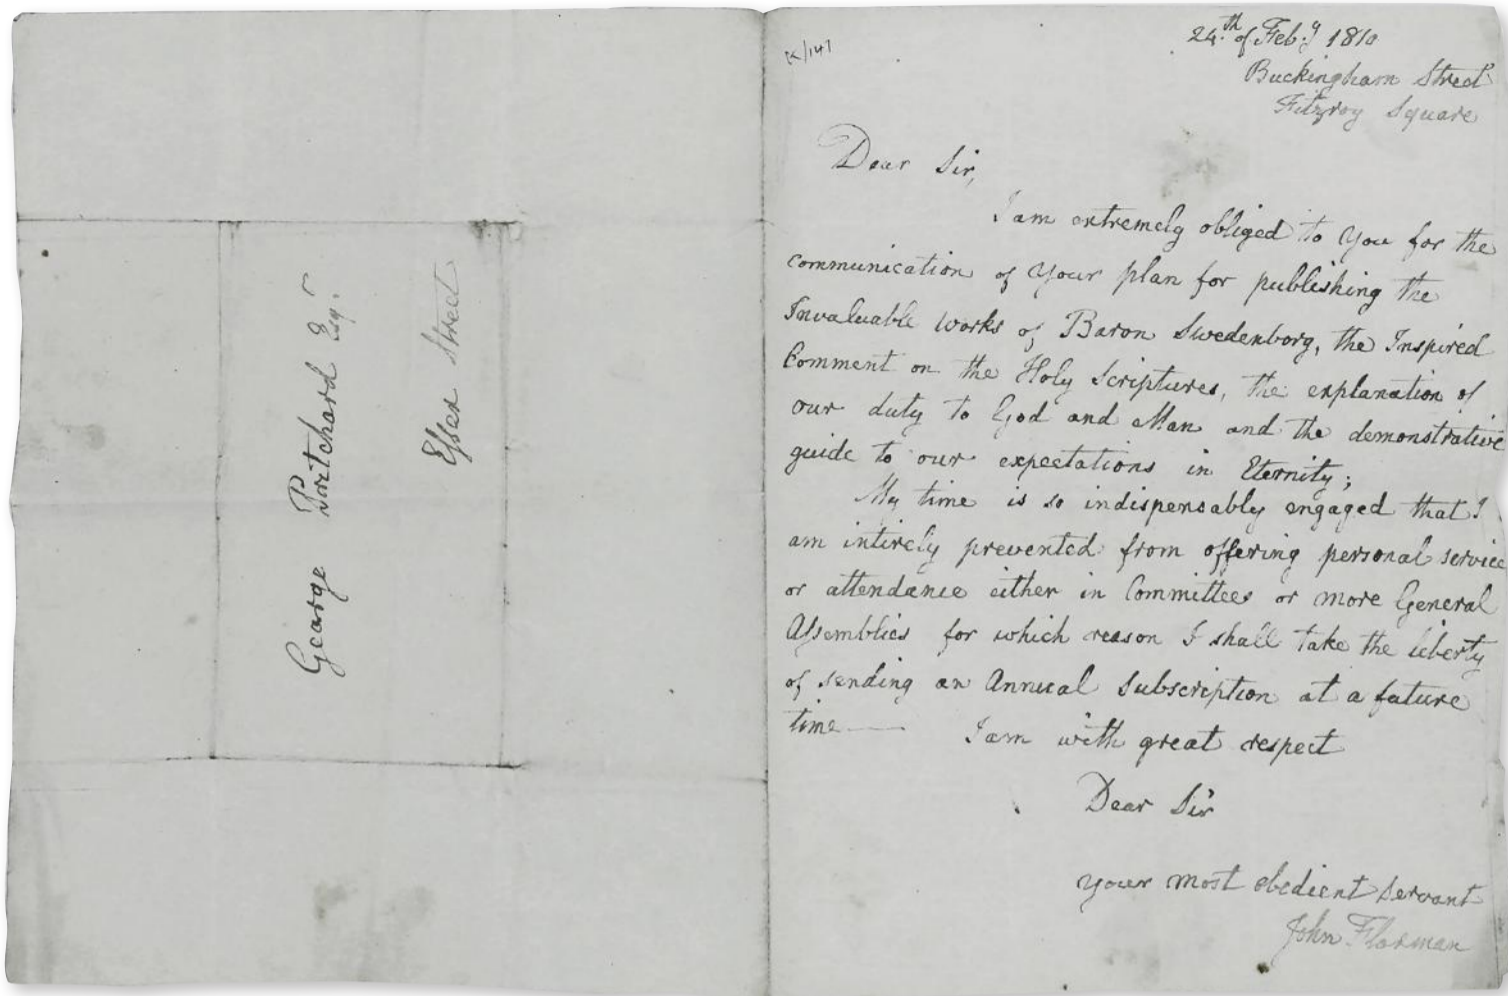 George Pritchard Esqr.
Essex Street
K/147
24.th of Feb.y 1810
Buckingham Street
Fitzroy Square
Dear Sir,
I am extremely obliged to You for the
communication of Your plan for publishing the
Invaluable works of Baron Swedenborg, the Inspired
Comment on the Holy Scriptures, the explanation of
our duty to God and Man and the demonstrative
guide to our expectations in Eternity;
My time is so indispensably engaged that I
am intirely prevented from offering personal service
or attendance either in Committees or more General
Assemblies for which reason I shall take the liberty
of sending an Annual Subscription at a future
time — I am with great respect
Dear Sir
your most obedient servant
John Flaxman